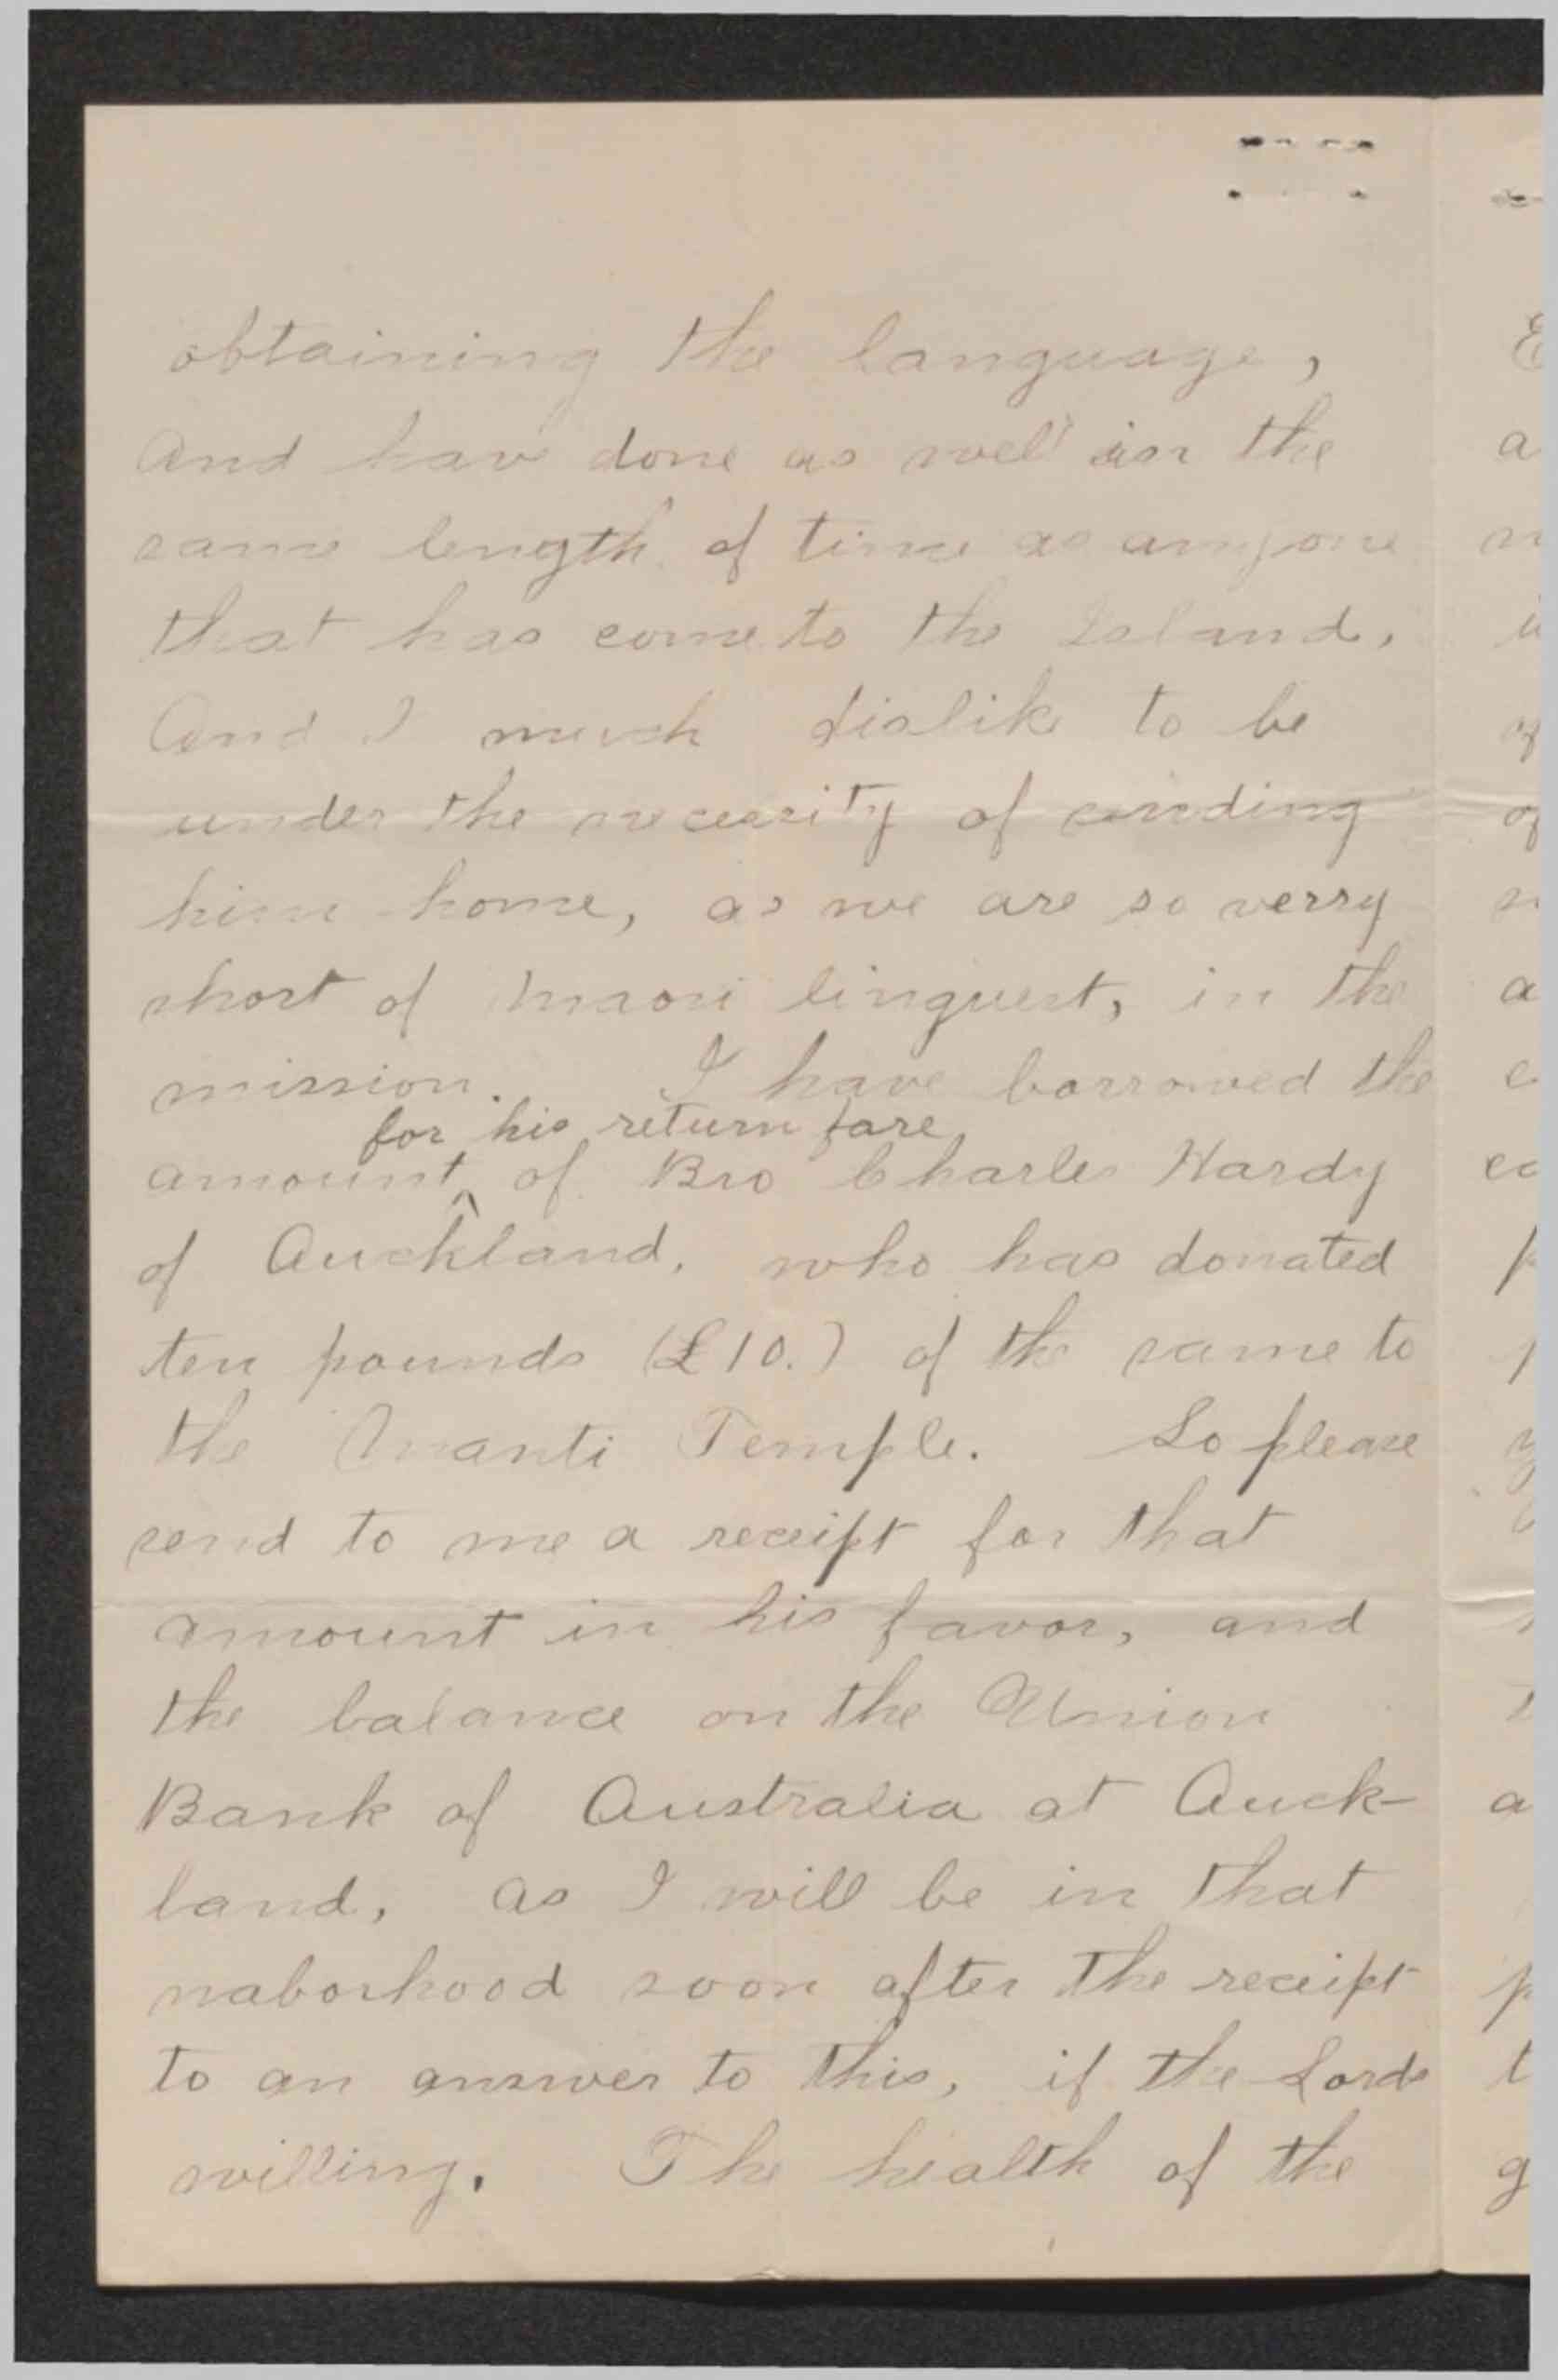 obtaining the language,
and have done as well in the
same length of time as anyone
that has come to the Island.
And I much dislike to be
under the necessity of cending
him home, as we are so verry
short of Maori linguest, in the
mission. I have borrowed the
for his return fare
amount ^ of Bro Charles Hardy
of Auckland, who has donated
ten pounds (£10.) of the same to
the Manti Temple. So please
send to me a receipt for that
amount in his favor, and
the balance on the Union
Bank of Australia at Auck-
land, as I will be in that
naborhood soon after the receipt
to an answer to this, if the Lords
willing. The health of the